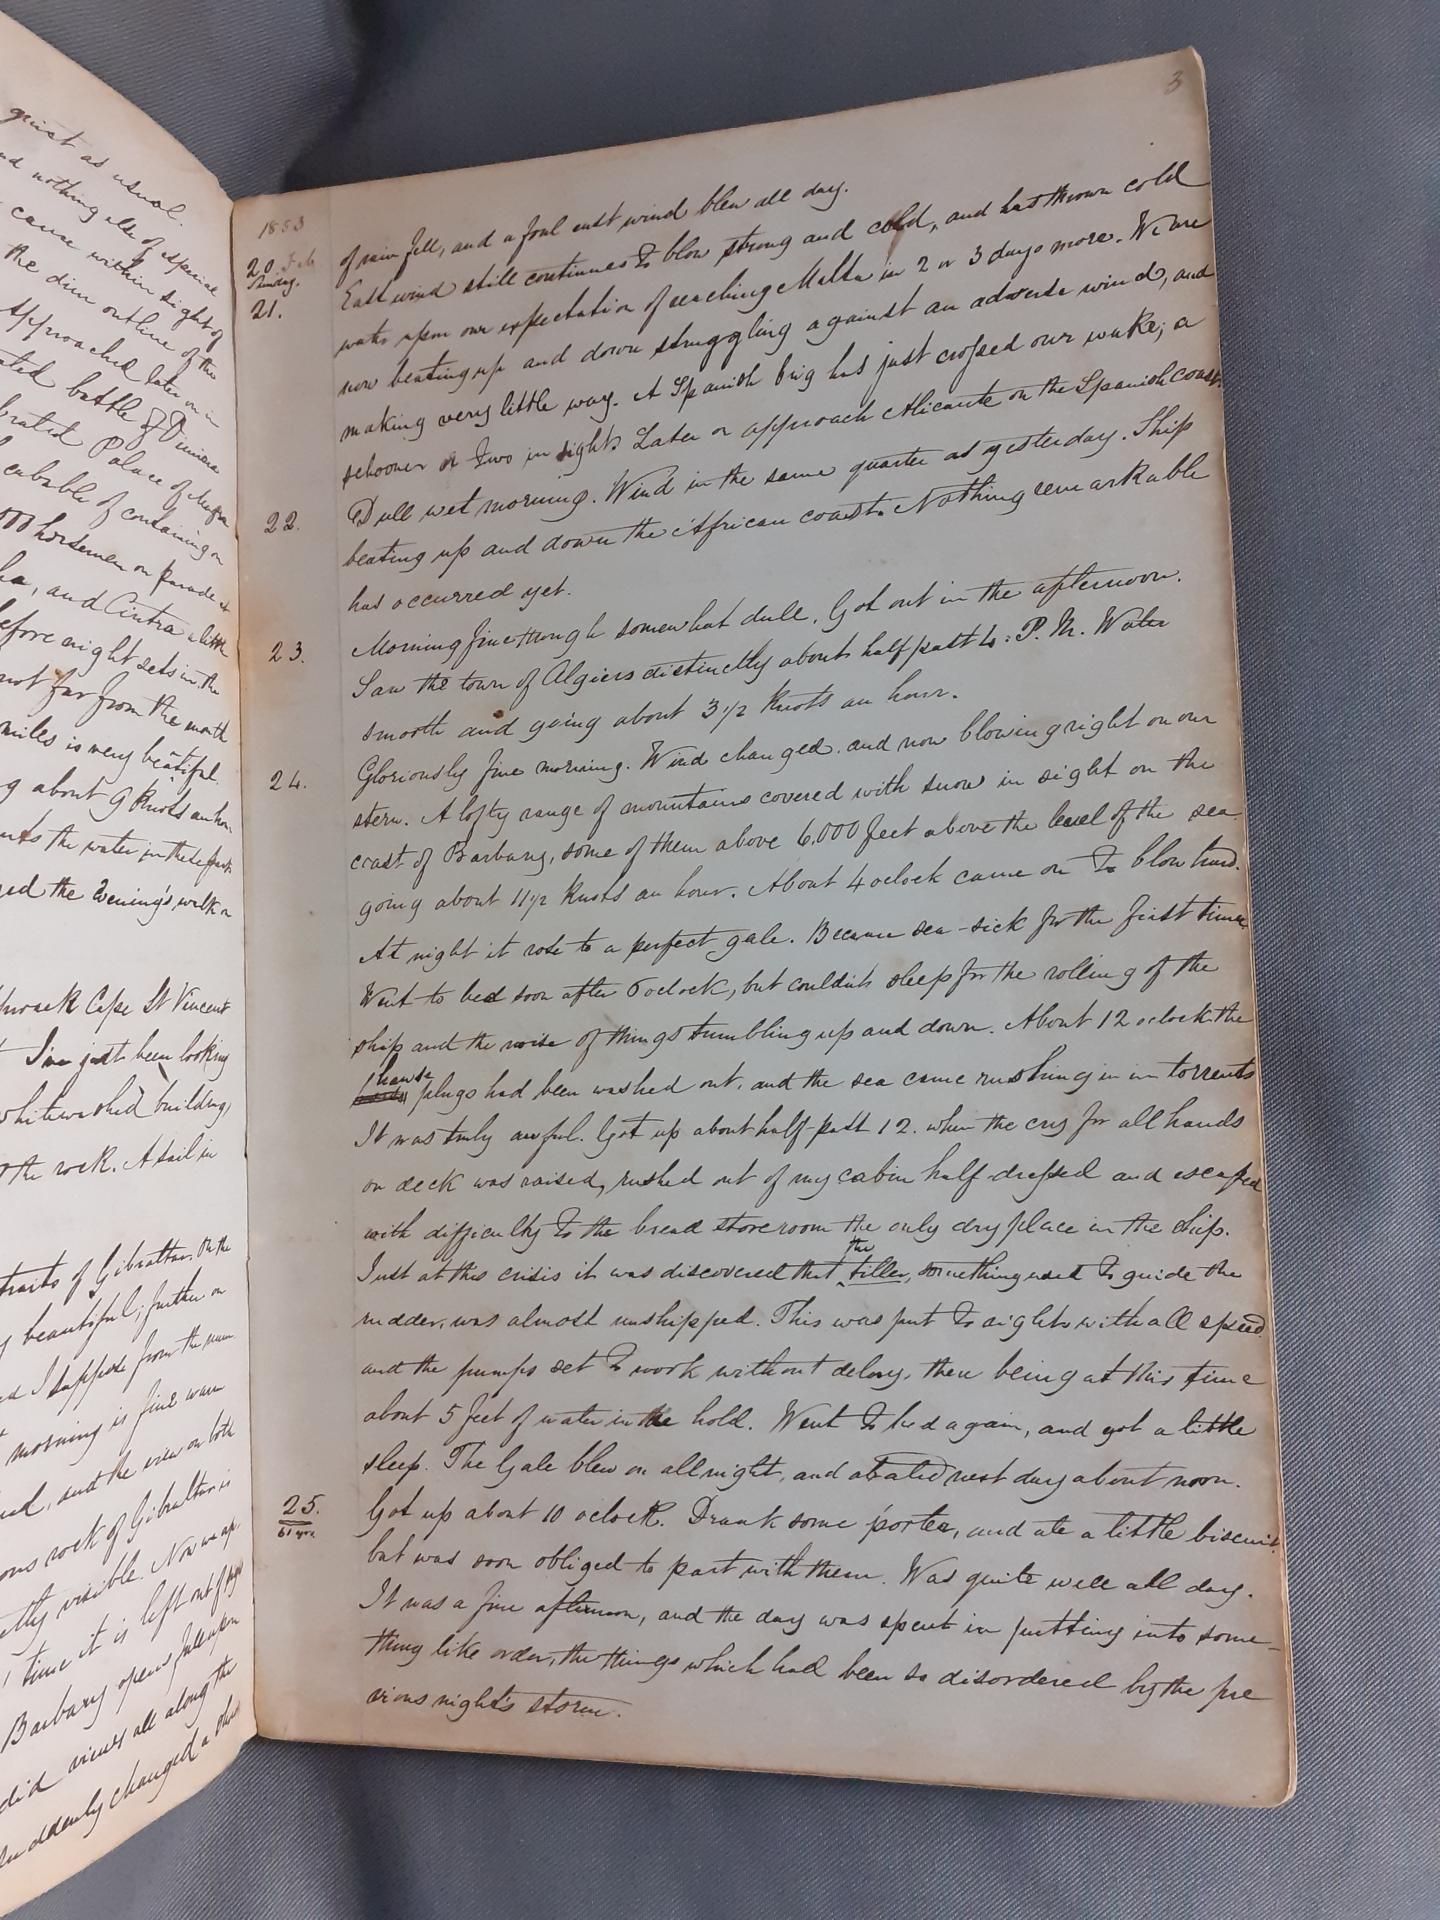 quiet as usual.
nd nothing else of especial
cause within sight of
the dim outline of the
Approached later on in
ated battle of Vimiera
brated Palace of Mafra
capable of containing on
000 horsemen on parade at
ha, and Cintra a little
efore night sets in. the
not far from the mouth
miles is very beautiful.
g about 9 Knots an hou
nts the water in these parts
yed the evening's walk on
pproach Cape St Vincent
I've just been looking
whitewashed building,
the rock. A sail in
traits of Gibraltar. On the
y beautiful; further on
ed I suppose from the num
morning is fine warm
ed, and the view on both
ous rock of Gibraltar is
ctly visible. Now we ap
time it is left out of sight
Barbary opens full upon
did views all along the
uddenly changed a short
3
1853
of rain fell, and a foul east wind blew all day.
20. Feb
Sunday.
East wind still continues to blow strong and cold, and has thrown cold
21.
water upon our expectation of reaching Malta in 2 or 3 days more. We are
now beating up and down struggling against an adverse wind, and
making very little way. A Spanish brig has just crossed our wake; a
schooner or two in sight. Later on approach Alicante on the Spanish coast.
22.
Dull wet morning. Wind in the same quarter as yesterday. Ship
beating up and down the African coast. Nothing remarkable
has occurred yet.
23.
Morning fine though somewhat dull. Got out in the afternoon.
Saw the town of Algiers distinctly about half past 4. P. M. Water
smooth and going about 3 1/2 Knots an hour.
24.
Gloriously fine morning. Wind changed. and now blowing right on our
stern. A lofty range of mountains covered with snow in sight on the
coast of Barbary, some of them above 6,000 feet above the level of the sea.
going about 11 1/2 Knots an hour. About 4 oclock came on to blow hard.
At night it rose to a perfect gale. Became sea-sick for the first time.
Went to bed soon after 6 oclock, but couldn't sleep for the rolling of the
ship and the noise of things tumbling up and down. About 12 oclock the
hawse plugs had been washed out, and the sea came rushing in in torrents
It was truly awful. Got up about half-past 12. when the cry for all hands
on deck was raised, rushed out of my cabin half-dressed and escaped
with difficulty to the bread storeroom the only dry place in the ship.
Just at this crisis it was discovered that the tiller, something used to guide the
rudder, was almost unshipped. This was put to rights with all speed
and the pumps set to work without delay, there being at this time
about 5 feet of water in the hold. Went to bed again, and got a little
sleep. The Gale blew on all night, and abated next day about noon.
25.
61 yrs.
Got up about 10 oclock. Drank some porter, and ate a little biscuit.
but was soon obliged to part with them. Was quite well all day.
It was a fine afternoon, and the day was spent in putting into some-
thing like order, the things which had been so disordered by the pre
vious night's storm.